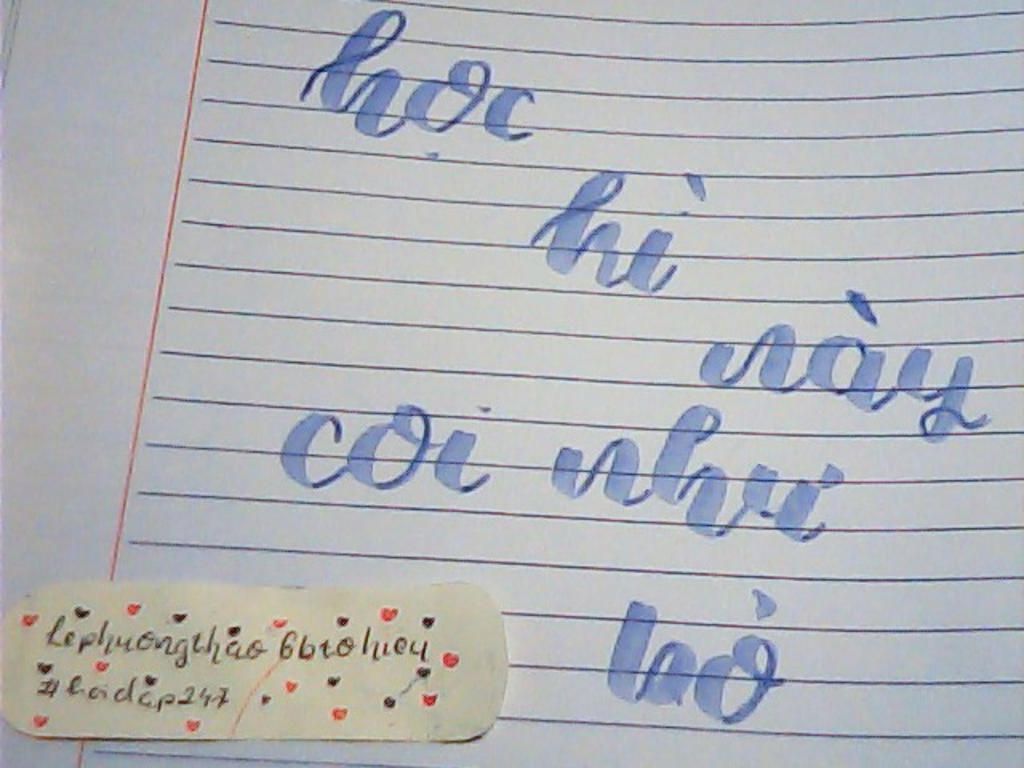 học
hì
này
coi như
bỏ
lephuongthao6btohieu
#hoidap247